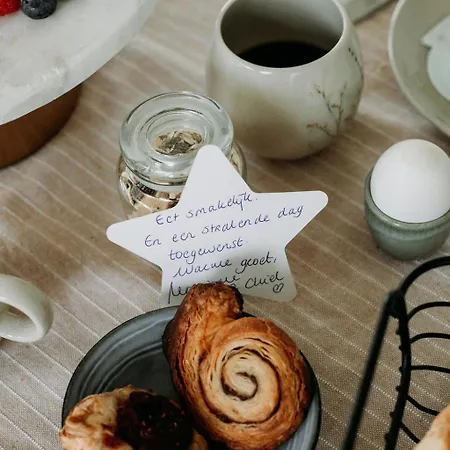 Eet smakelijk.
En een stralende dag
toegewenst
Warme groet,